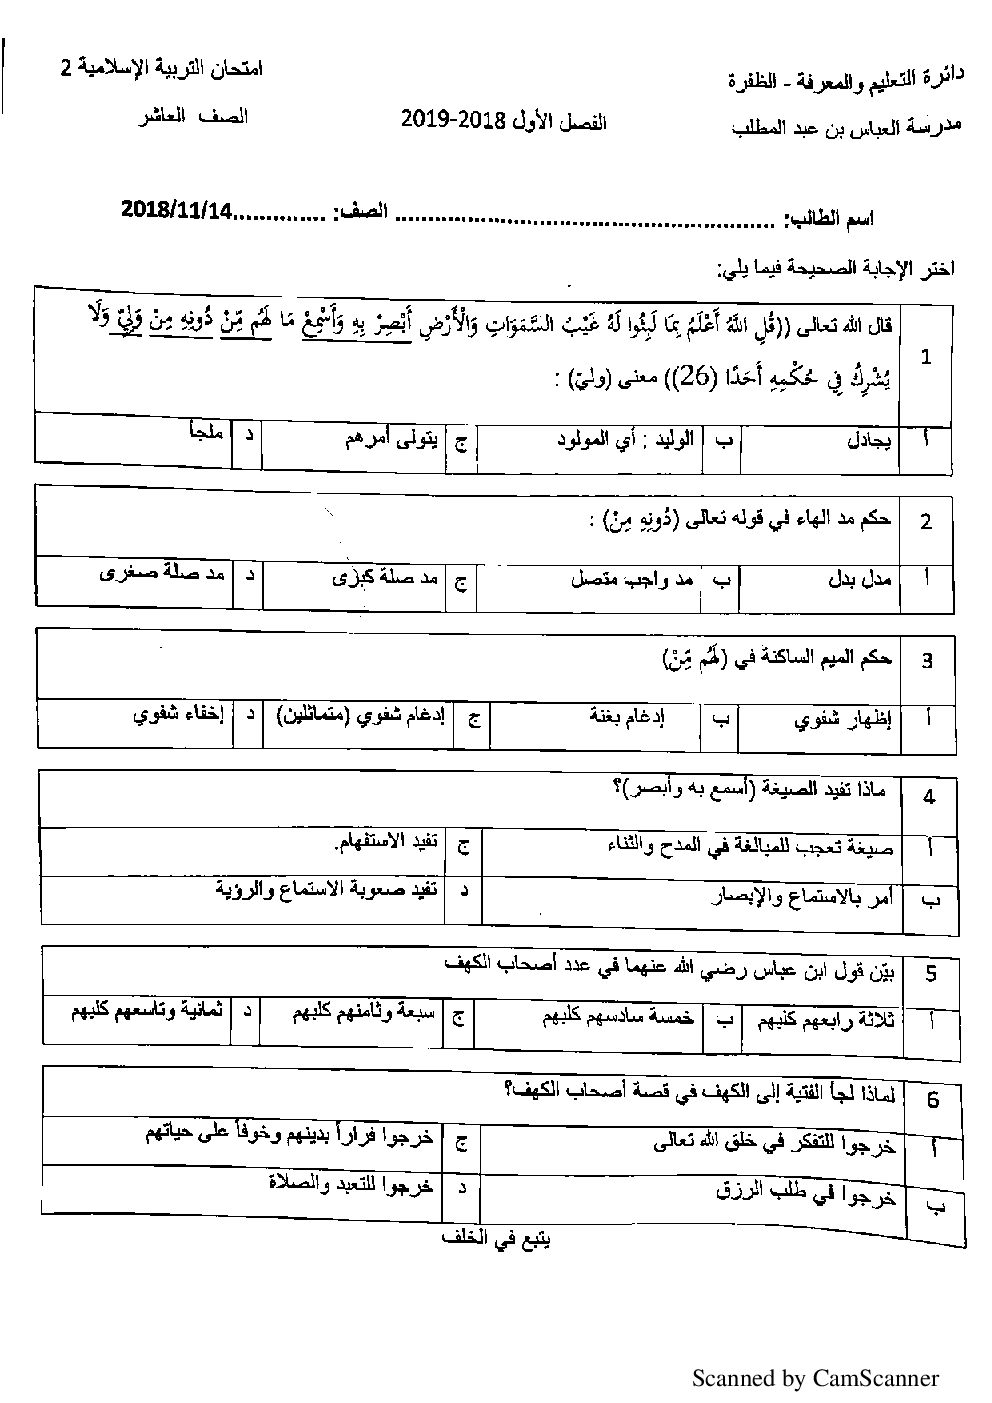 دائرة التعليم والمعرفة - الظفرة
امتحان التربية الإسلامية 2
مدرسة العباس بن عبد المطلب
الفصل الأول 2018-2019
الصف العاشر
اسم الطالب: ............................................................ الصف: ..............2018/11/14
اختر الإجابة الصحيحة فيما يلي:
1 قال الله تعالى ((قُلِ اللَّهُ أَعْلَمُ بِمَا لَبِثُوا لَهُ غَيْبُ السَّمَوَاتِ وَالْأَرْضِ أَبْصِرْ بِهِ وَأَسْمِعْ مَا لَهُم مِّنْ دُونِهِ مِنْ وَلِيٍّ وَلَا
يُشْرِكُ فِي حُكْمِهِ أَحَدًا (26)) معنى (ولي) :
أ يجادل ب الوليد : أي المولود ج يتولى أمرهم د ملجأ
2 حكم مد الهاء في قوله تعالى (دُونِهِ مِنْ) :
أ مدل بدل ب مد واجب متصل ج مد صلة كبرى د مد صلة صغرى
3 حكم الميم الساكنة في (لَهُم مِّنْ)
أ إظهار شفوي ب إدغام بغنة ج إدغام شفوي (متماثلين) د إخفاء شفوي
4 ماذا تفيد الصيغة (أسمع به وأبصر)؟
أ صيغة تعجب للمبالغة في المدح والثناء ج تفيد الاستفهام.
ب أمر بالاستماع والإبصار د تفيد صعوبة الاستماع والرؤية
5 بيّن قول ابن عباس رضي الله عنهما في عدد أصحاب الكهف
أ ثلاثة رابعهم كلبهم ب خمسة سادسهم كلبهم ج سبعة وثامنهم كلبهم د ثمانية وتاسعهم كلبهم
6 لماذا لجأ الفتية إلى الكهف في قصة أصحاب الكهف؟
أ خرجوا للتفكر في خلق الله تعالى ج خرجوا فراراً بدينهم وخوفاً على حياتهم
ب خرجوا في طلب الرزق د خرجوا للتعبد والصلاة
يتبع في الخلف
Scanned by CamScanner